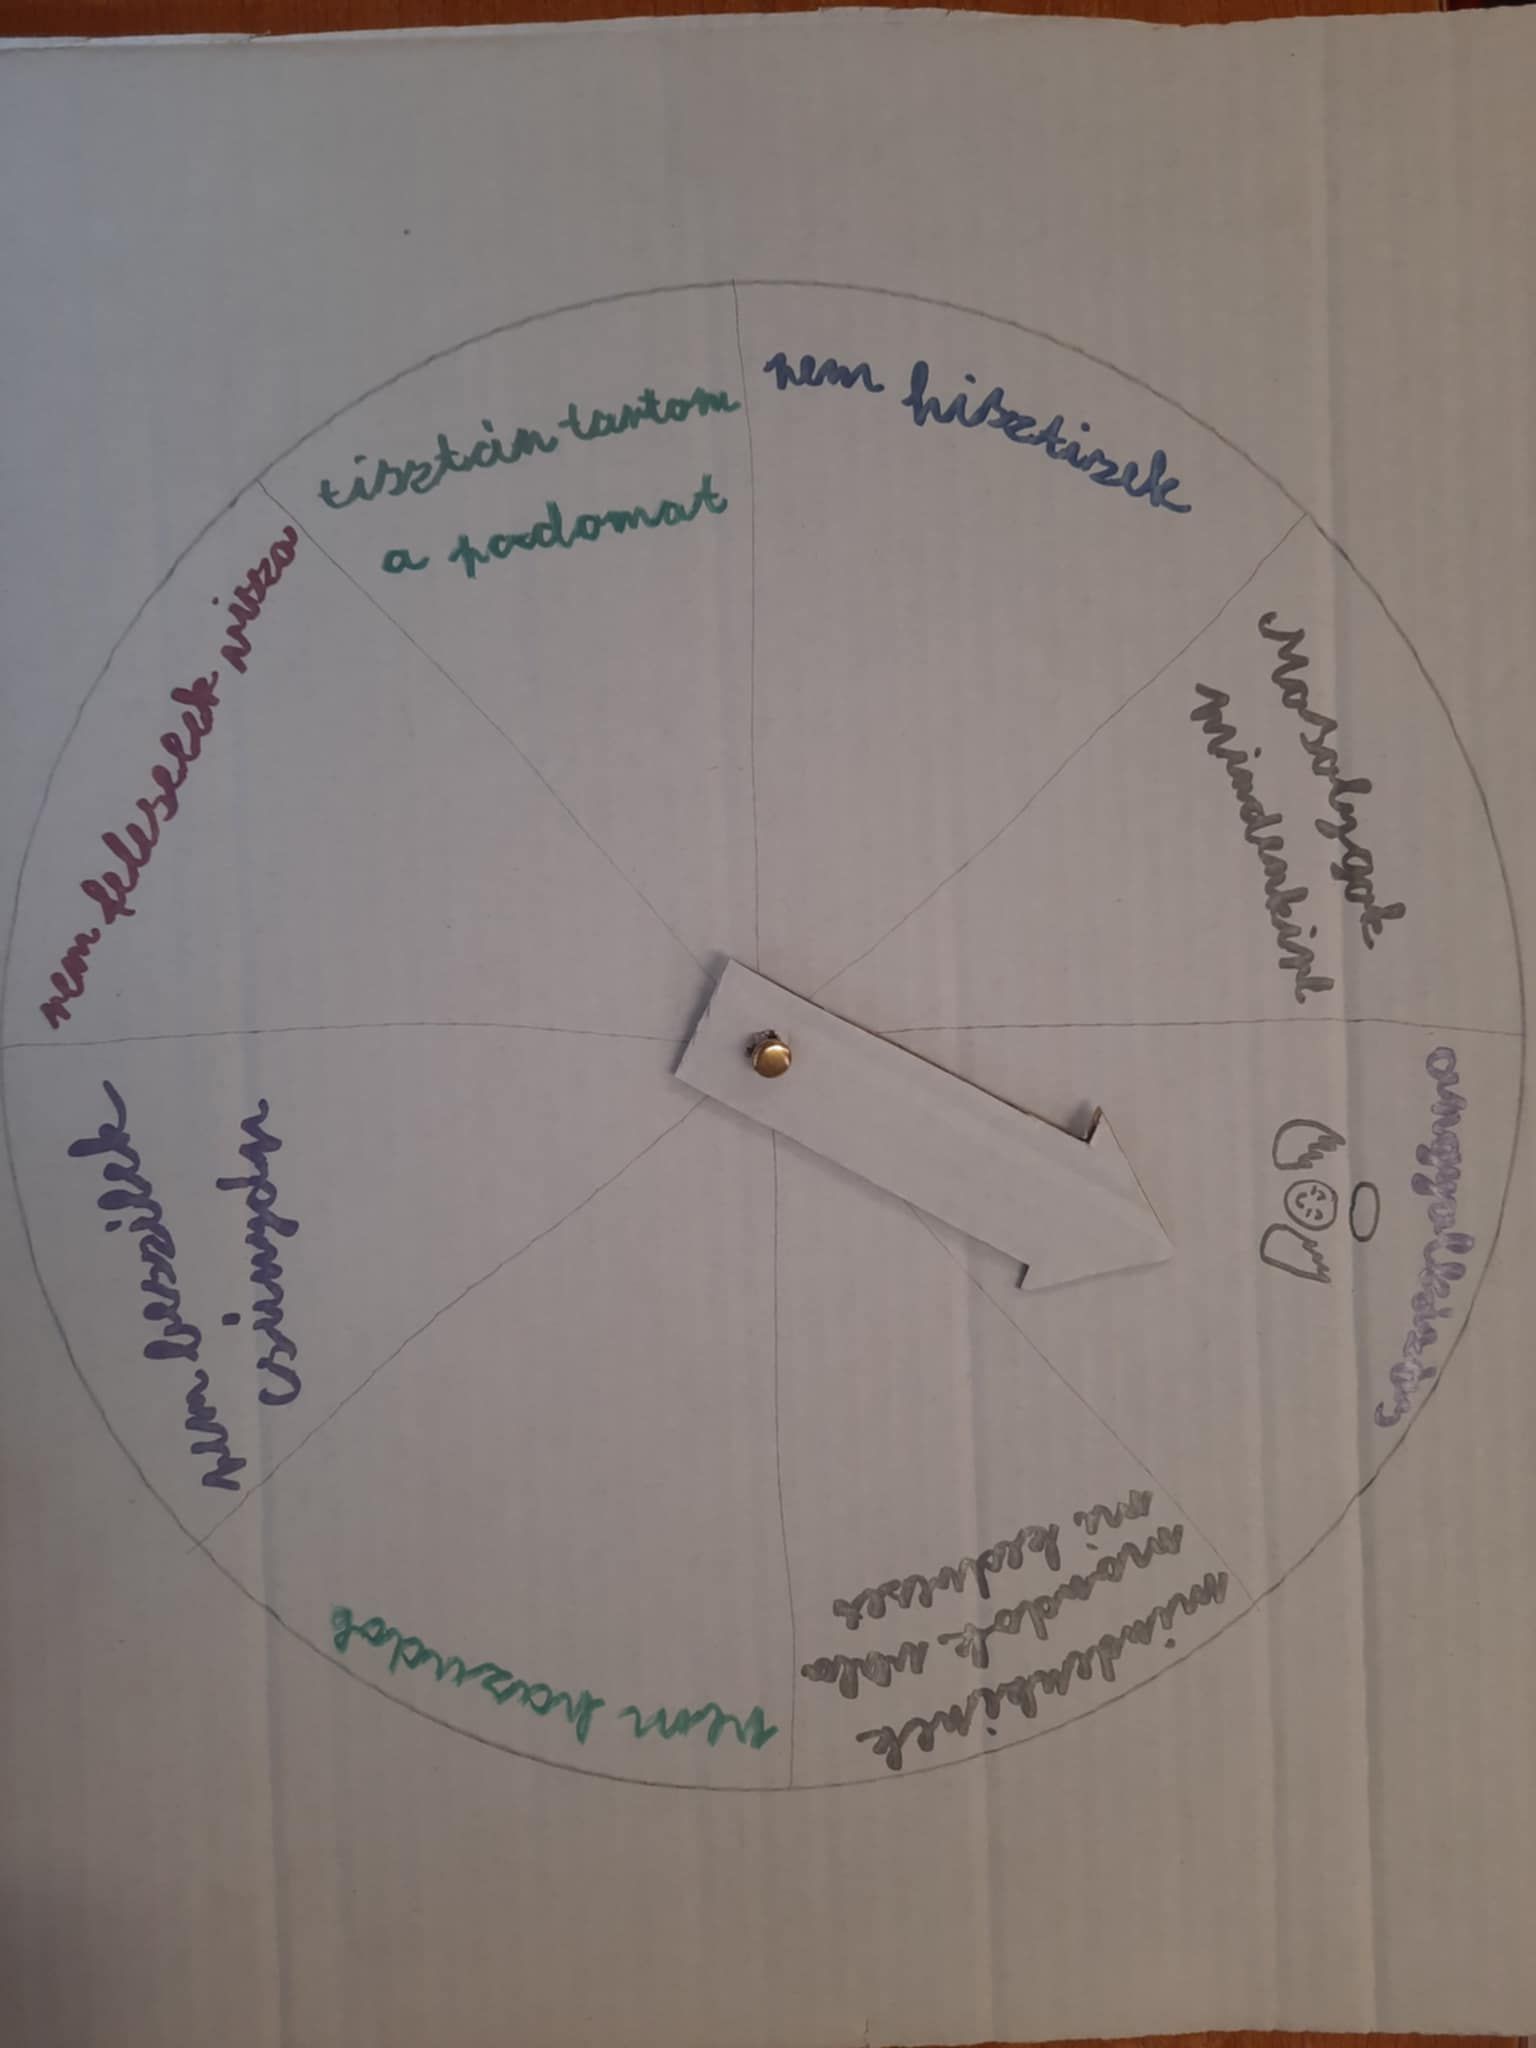 nem hisztizek
Mosolygok
mindenkire
angyalkártya
mindenkinek
mondok vala
mi kedveset
nem hazudok
nem beszélek
csúnyán
nem feleselek vissza
tisztán tartom
a padomat